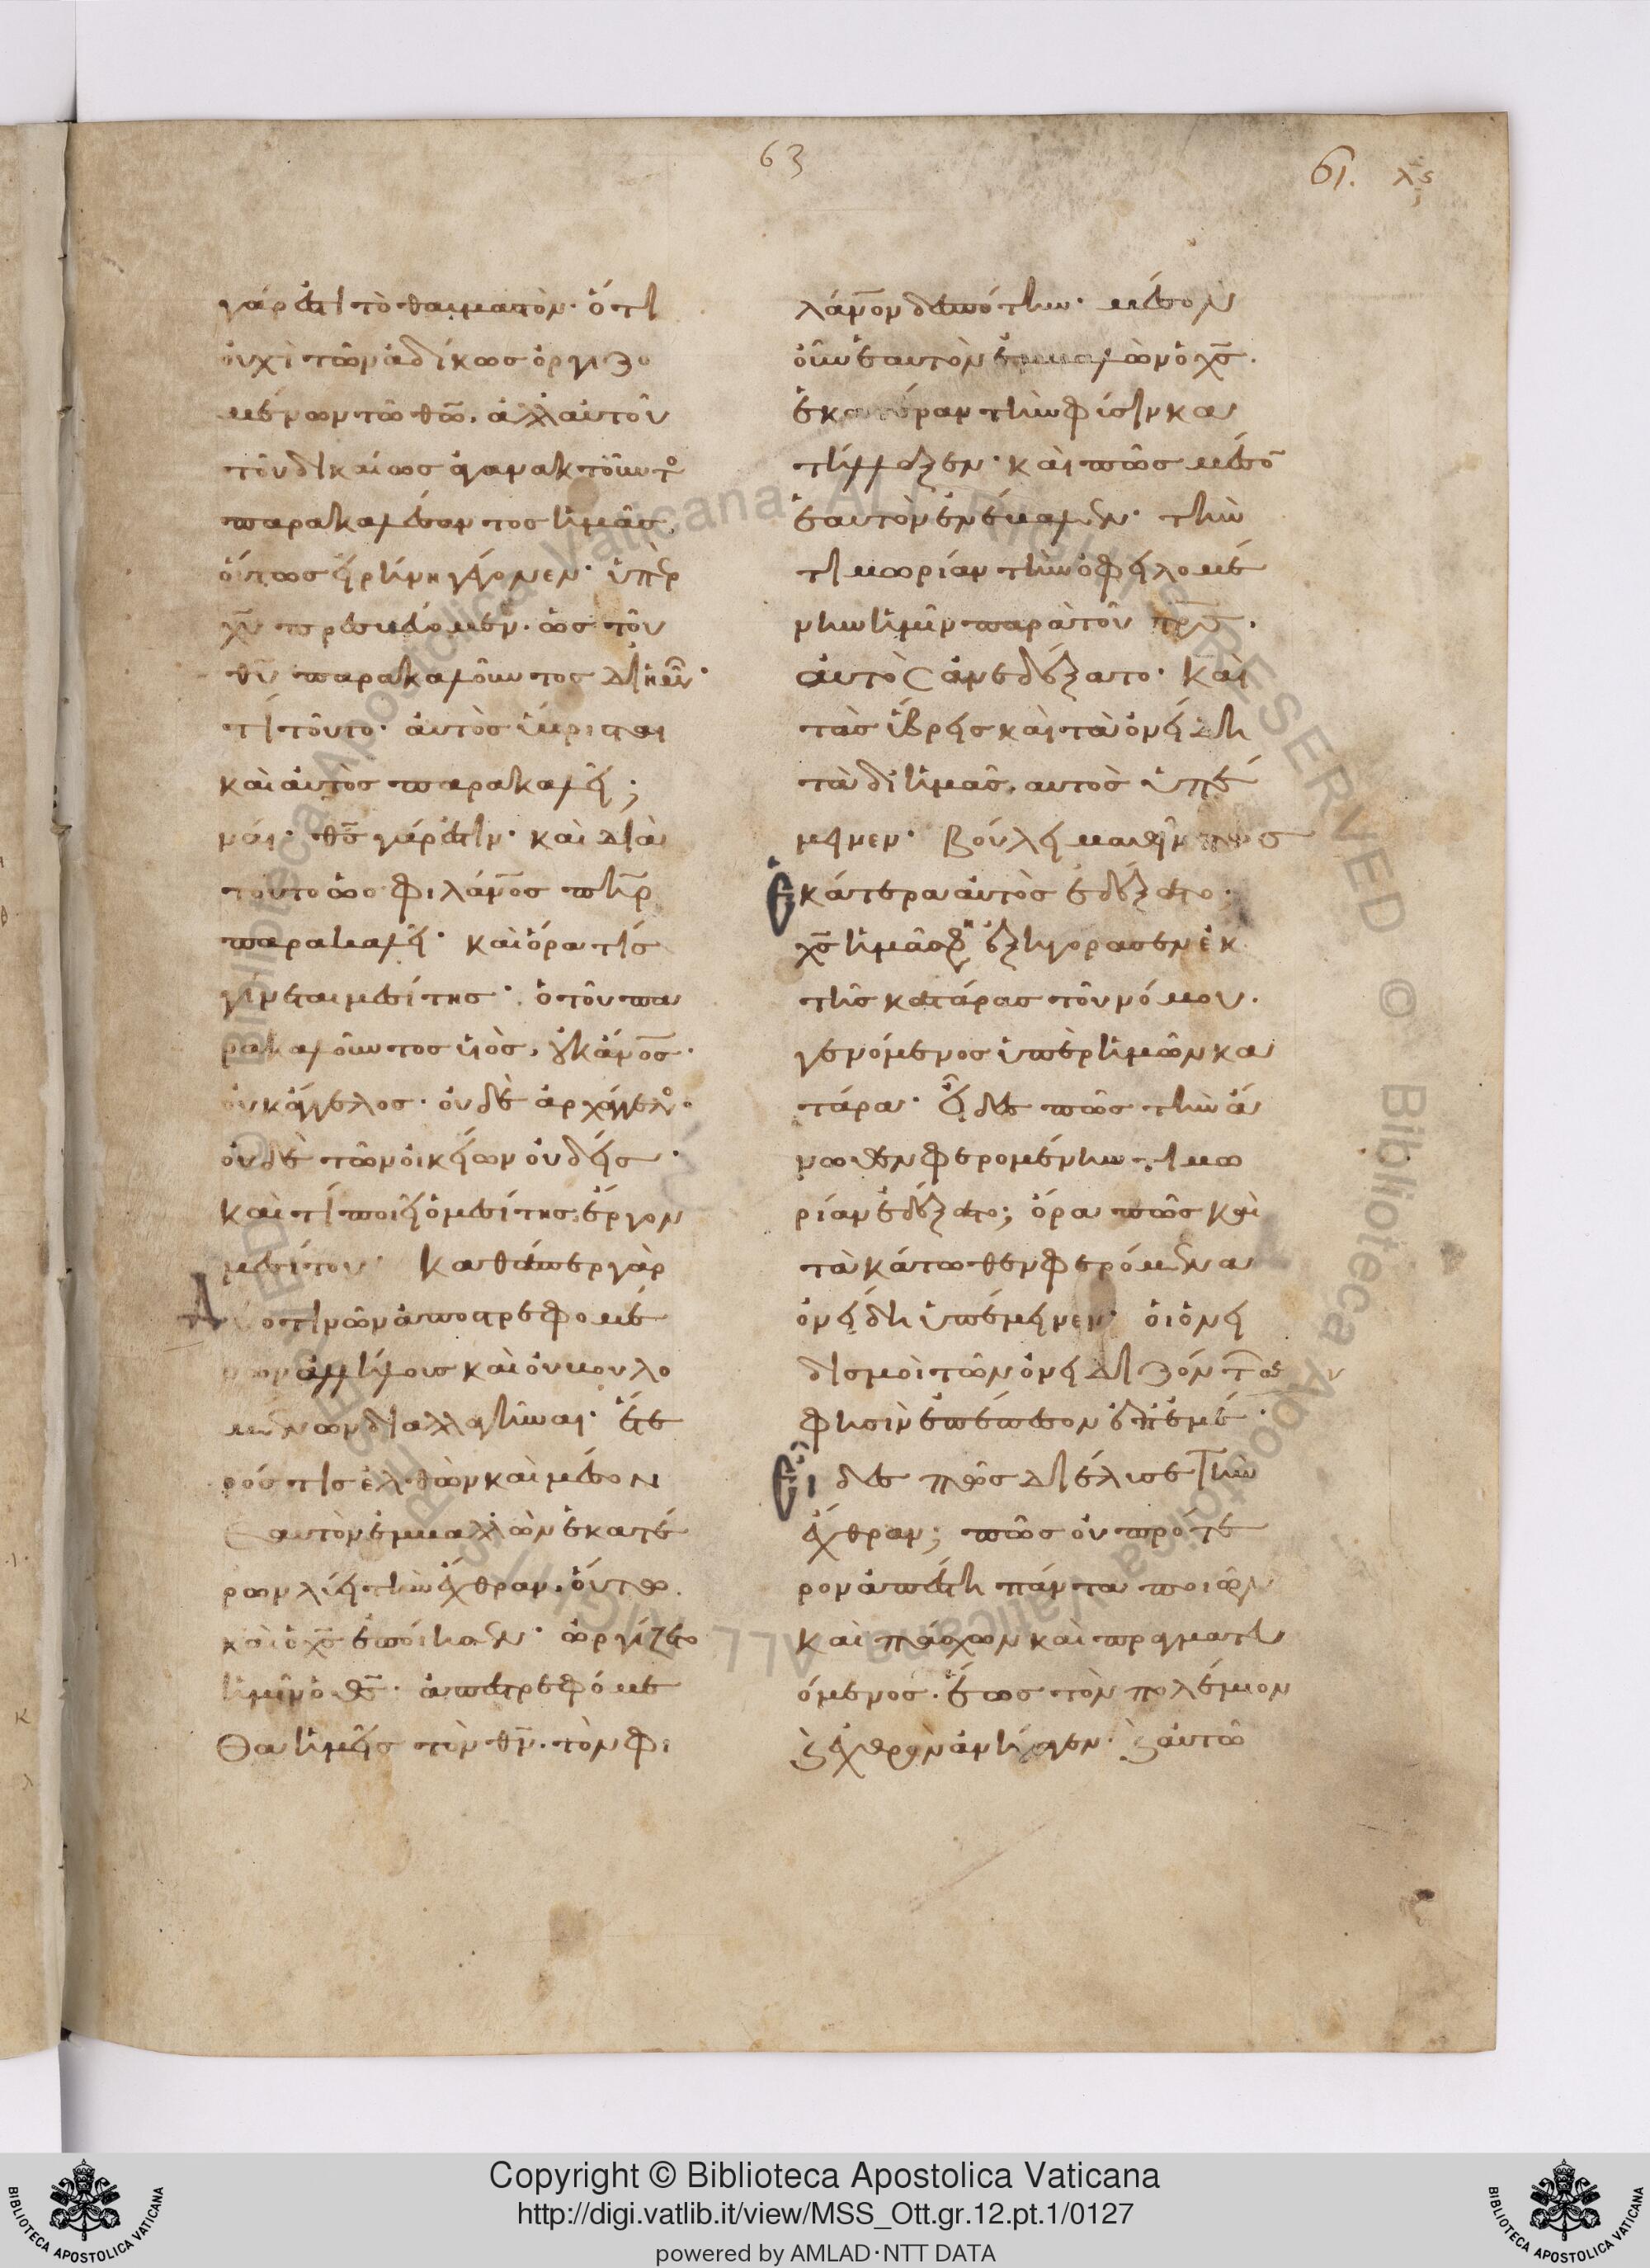 63
61. λϛ
γάρ ἐστι τὸ θαυμαστὸν· ὅτι
οὐχὶ τῶν ἀδίκως ὀργιζο
μένων τῶ θω̅, ἀλλ' αὐτοῦ
τοῦ δικαίως ἀγανακτοῦντο
παρακαλέσαντος ἡμᾶς,
οὕτως εἰρήνη γέγονεν· ὑπὲρ
χυ̅ πρεσβεύομεν· ὡς τοῦ
θυ̅ παρακαλοῦντος δι ἡμῶν·
τί τοῦτο· αὐτὸς ὕβρισται
καὶ αὐτὸς παρακαλεῖ;
ναί· θς̅ γάρ ἐστιν· καὶ διὰ
τοῦτο ὡς φιλάνο̅ς πη̅ρ
παρακαλεῖ· καὶ ὅρα τίς
γίνεται μεσίτης· ὁ τοῦ πα
ρακαλοῦντος υἱὸς, οὐκ ἄνο̅ς·
οὐκ ἄγγελος· οὐδὲ ἀρχάγγελο·
οὐδὲ τῶν οἰκείων οὐδείς·
καὶ τί ποιεῖ ὁ μεσίτης; ἔργον
μεσίτου· καθάπερ γὰρ
Δύο τινῶν ἀποστρεφομέ
νων ἀλλήλους καὶ οὐ βουλο
μένων διαλλαγῆναι· ἕτε
ρός τις ἐλθὼν καὶ μέσον
ἑαυτὸν ἐμβαλλὼν ἑκατέ
ρων λύει τὴν ἔχθραν, οὕτω
καὶ ὁ χς̅ ἐποίησεν· ὠργίζετο
ἡμῖν ὁ θς̅· ἀπεστρεφόμε
θα ἡμεῖς τὸν θν̅· τὸν φι
λάνο̅ν δεσπότην· μέσον
οὖν ἑαυτὸν ἐμβαλὼν ὁ χς̅·
ἑκατέραν τὴν φύσιν κα
τήλλαξεν· καὶ πῶς μέσον
ἑαυτὸν ἐνέβαλεν· τὴν
τιμωρίαν τὴν ὀφειλομέ
νην ἡμῖν παρὰ τοῦ πρς̅·
αὐτὸς ἀνεδέξατο· καὶ
τὰς ὕβρεις καὶ τὰ ὀνείδη
τὰ δι ἡμᾶς, αὐτὸς ὑπέ
μεινεν· βούλει μαθεῖν πῶς
Ἑκάτερα αὐτὸς ἐδέξατο;
χς̅ ἡμᾶς φησὶν ἐξηγόρασεν ἐκ
τῆς κατάρας τοῦ νόμου·
γενόμενος ὑπὲρ ἡμῶν κα
τάρα· εἶδες πῶς τὴν ἄ
νωθεν φερομένην τιμω
ρίαν ἐδέξατο; ὅρα πῶς καὶ
τὰ κάτωθεν φερόμενα
ὀνείδη ὑπέμεινεν· οἱ ὀνει
δισμοὶ τῶν ὀνειδιζόντων σε
φησὶν ἐπέπεσον ἐπ' ἐμέ·
Εἶδες πῶς διέλυσε τὴν
ἔχθραν; πῶς οὐ πρότε
ρον ἀπέστη πάντα ποιῶν
καὶ πάσχων καὶ πραγματευ
όμενος· ἕως τὸν πολέμιον
καὶ ἐχθρὸν ἀνήγαγεν· καὶ αὐτῶ
Copyright © Biblioteca Apostolica Vaticana
http://digi.vatlib.it/view/MSS_Ott.gr.12.pt.1/0127
powered by AMLAD·NTT DATA